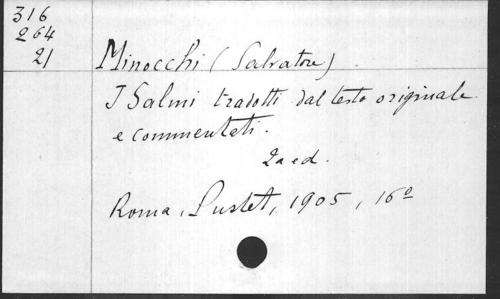 316
264
21
Minocchi (Salvatore)
I Salmi tradotti dal testo originale
e commentati.
2a ed.
Roma, Pustet, 1905, 16º